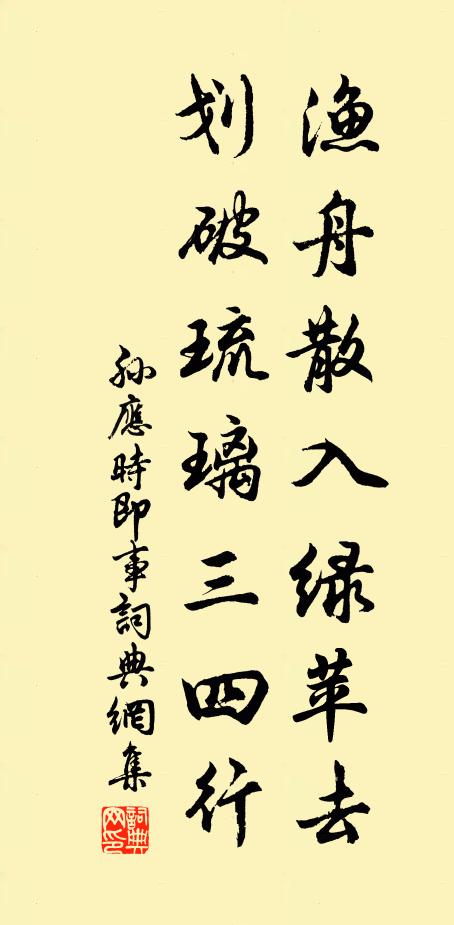 渔舟散入绿苹去
划破琉璃三四行
孙應時即事詞典網集
詞典网印